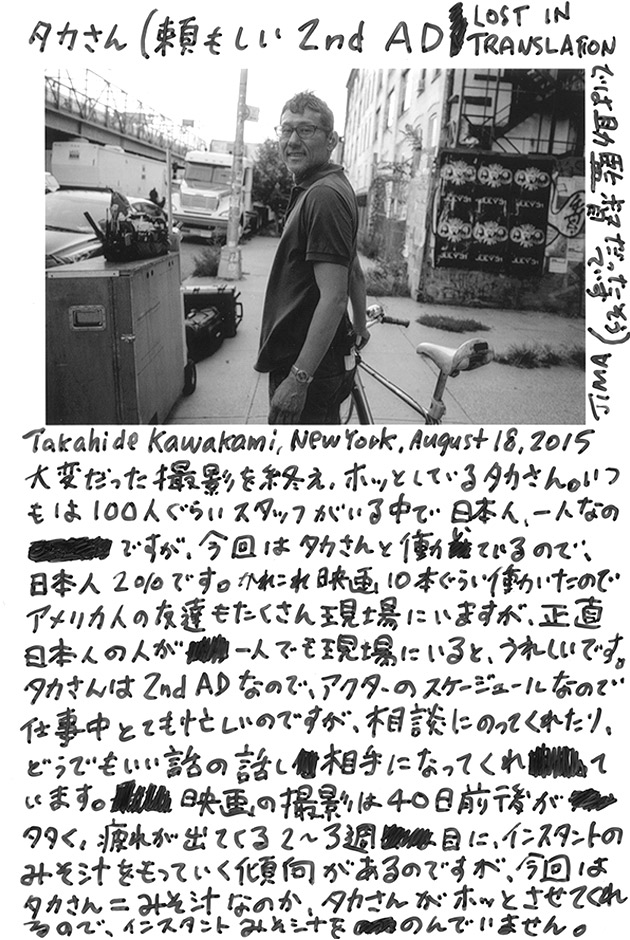 タカさん (頼もしい 2nd AD LOST IN
TRANSLATION
では助監督だったそう
です) JIMA
Takahide Kawakami, New York, August 18, 2015
大変だった撮影を終え、ホッとしているタカさん。いつ
もは100人ぐらいスタッフがいる中で日本人、一人なの
ですが、今回はタカさんと働いているので、
日本人2%です。かれこれ映画、10本ぐらい働いたので
アメリカ人の友達もたくさん現場にいますが、正直
日本人の人が一人でも現場にいると、うれしいです。
タカさんは2nd ADなので、アクターのスケージュールなので
仕事中とても忙しいのですが、相談にのってくれたり、
どうでもいい話の話し相手になってくれて
います。映画の撮影は40日前後が
多く、疲れが出てくる2〜3週目に、インスタントの
みそ汁をもっていく傾向があるのですが、今回は
タカさん=みそ汁なのか、タカさんがホッとさせてくれ
るので、インスタントみそ汁をのんでいません。